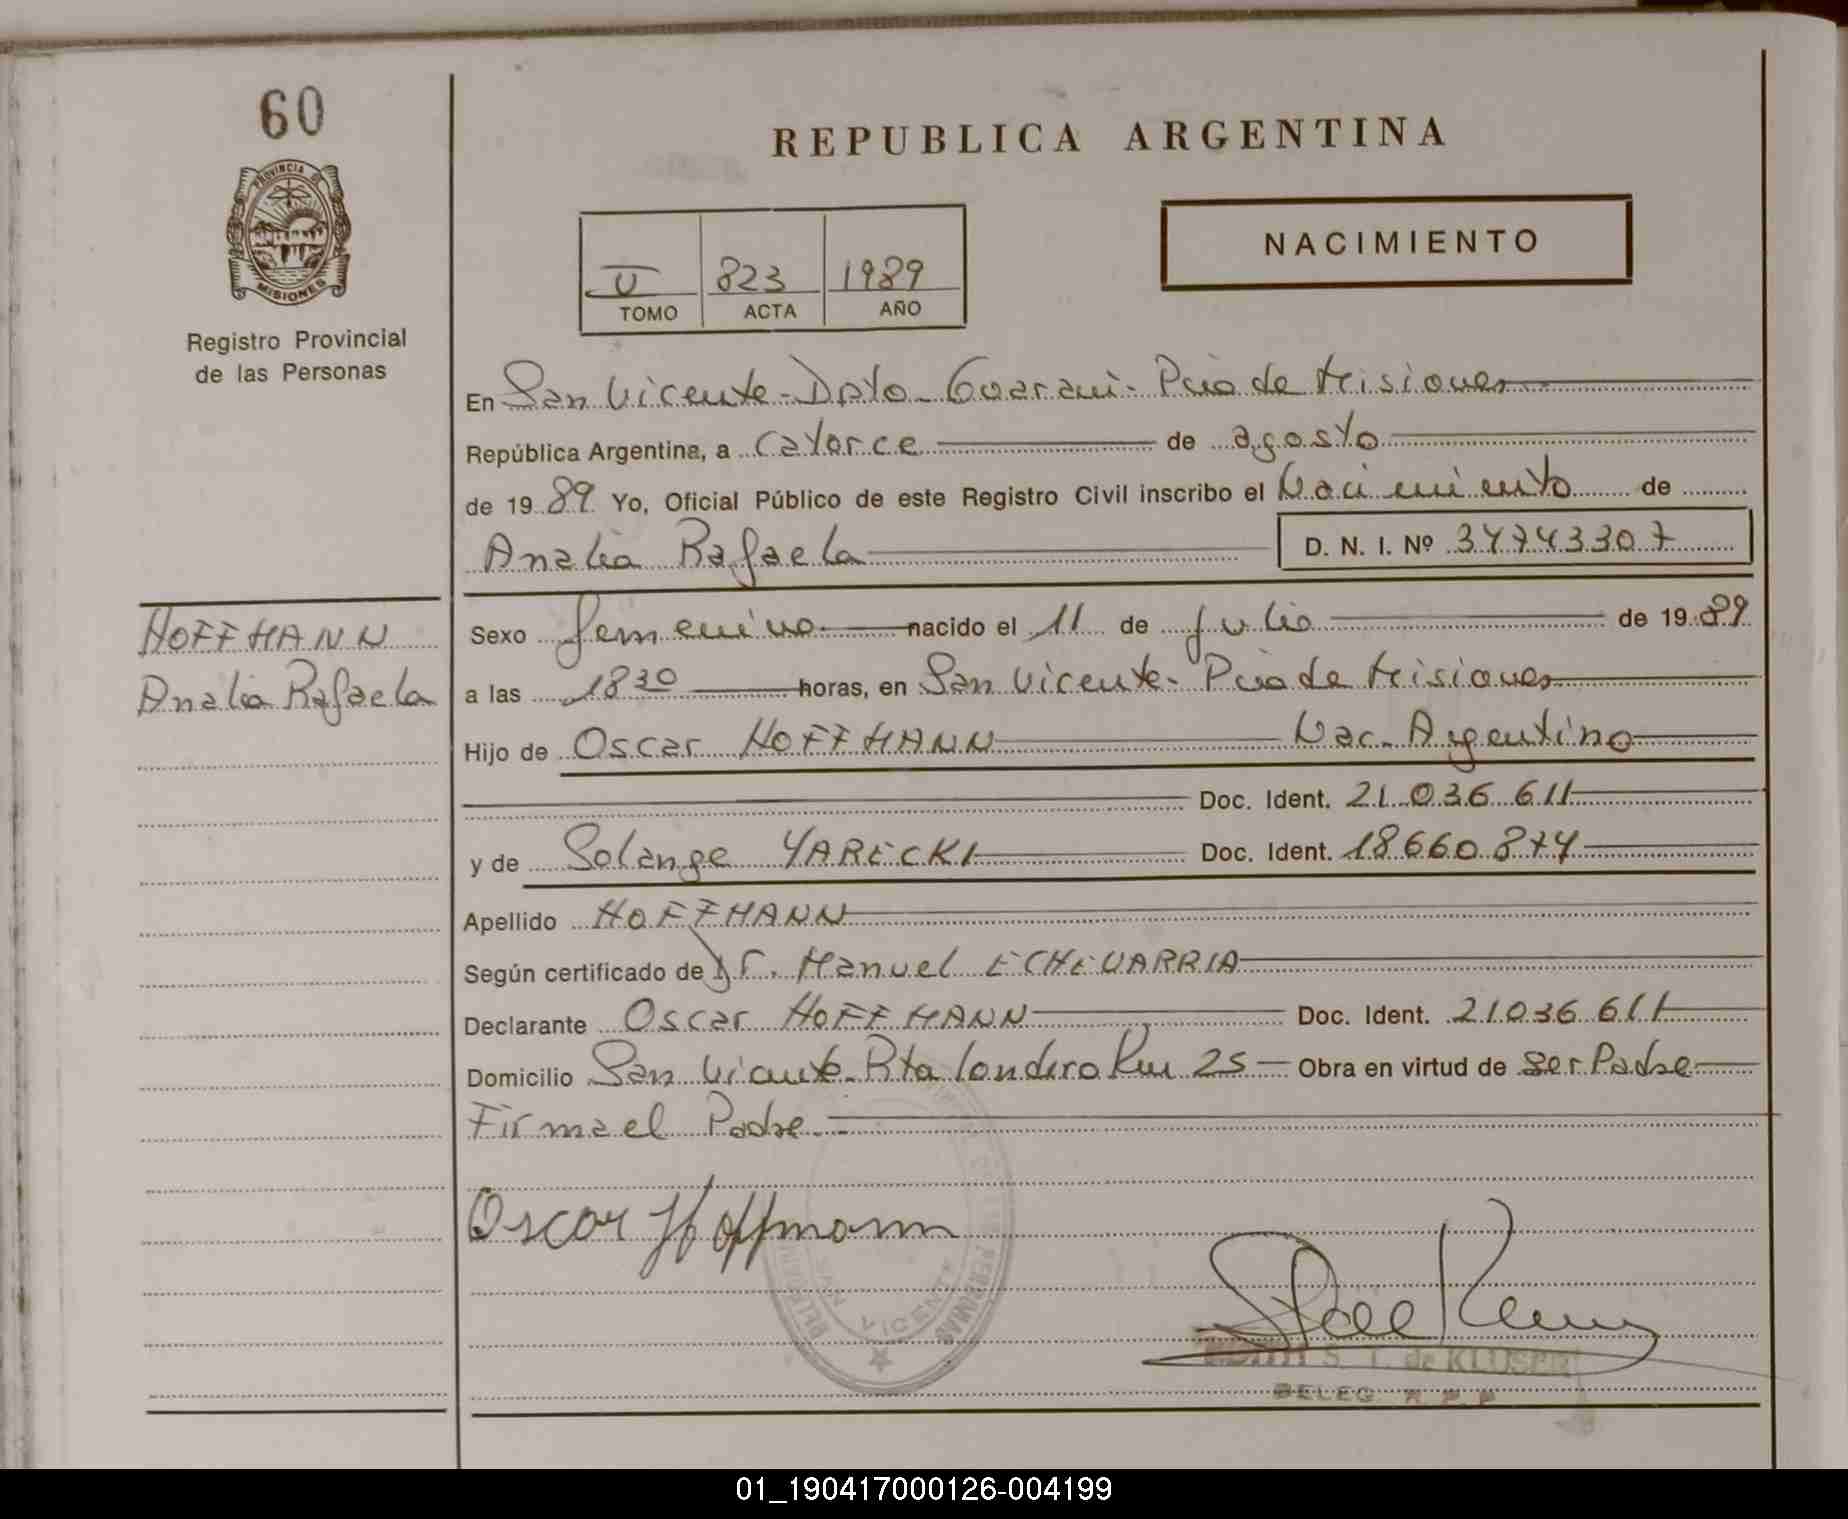 60
PROVINCIA DE
MISIONES
Registro Provincial
de las Personas
REPUBLICA ARGENTINA
NACIMIENTO
V 823 1989
TOMO ACTA AÑO
En San Vicente - Dpto. Guarani - Pcia de Misiones
República Argentina, a catorce de agosto
de 1989 Yo, Oficial Público de este Registro Civil inscribo el Nacimiento de
Analia Rafaela D. N. I. Nº 34743307
HOFFMANN
Analia Rafaela
Sexo femenino nacido el 11 de julio de 1989
a las 18 30 horas, en San Vicente - Pcia de Misiones
Hijo de Oscar HOFFMANN Nac. Argentino
Doc. Ident. 21.036.611
y de Solange YARECKI Doc. Ident. 18.660.874
Apellido HOFFMANN
Según certificado de Dr. Manuel ECHEVARRIA
Declarante Oscar HOFFMANN Doc. Ident. 21.036.611
Domicilio San Vicente Rta Londero Km 25 Obra en virtud de ser Padre
Firma el Padre.
Oscar Hoffmann
SAN VICENTE
S. T. de KLUSENER
DELEG. R. P. P
01_190417000126-004199